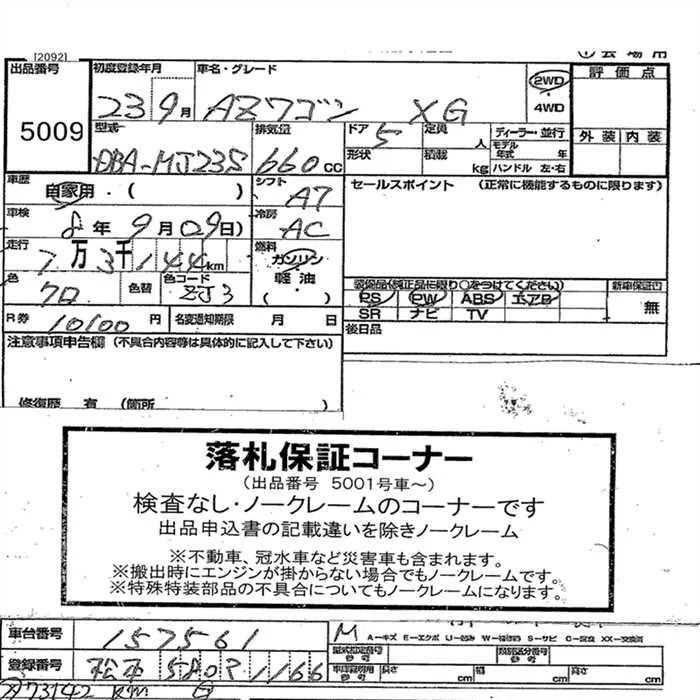 [2092]
出品番号 5009
初度登録年月 23 9月
車名・グレード AZワゴン XG
2WD
4WD
評価点
外装 内装
型式 DBA-MJ23S
排気量 660 CC
ドア 5
定員 人
ディーラー・並行
モデル年式 年
形状
積載 kg
ハンドル 左・右
車歴 自家用・( )
シフト A7
セールスポイント (正常に機能するものに限ります)
車検 8年 9月 09日)
冷房 AC
走行 7万 3千 144 km
燃料 ガソリン
軽油
・( )・
色 クロ
色替
色コード ZJ3
装備品(純正品に限り○をつけてください)
PS PW ABS エアB
SR ナビ TV
新車保証書
無
R券 10100 円
名変通知期限 月 日
後日品
注意事項申告欄 (不具合内容等は具体的に記入して下さい)
修復歴 有 (箇所 )
落札保証コーナー
(出品番号 5001号車~)
検査なし・ノークレームのコーナーです
出品申込書の記載違いを除きノークレーム
※不動車、冠水車など災害車も含まれます。
※搬出時にエンジンが掛からない場合でもノークレームです。
※特殊特装部品の不具合についてもノークレームになります。
車台番号 157561
M
A-キズ E-エクボ U-凹み W-補修跡 S-サビ C-腐食 XX-交換済
登録番号 松本 580 1166
型式指定番号 参考
類別区分番号 参考
長さ cm 幅 cm 高さ cm
73142 KM